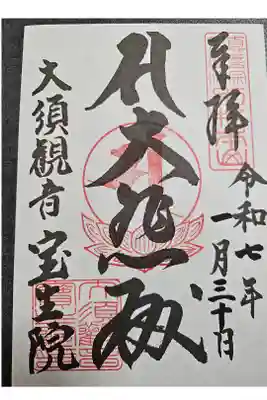 奉拝
令和七年
一月三十日
大悲殿
大須觀音 宝生院